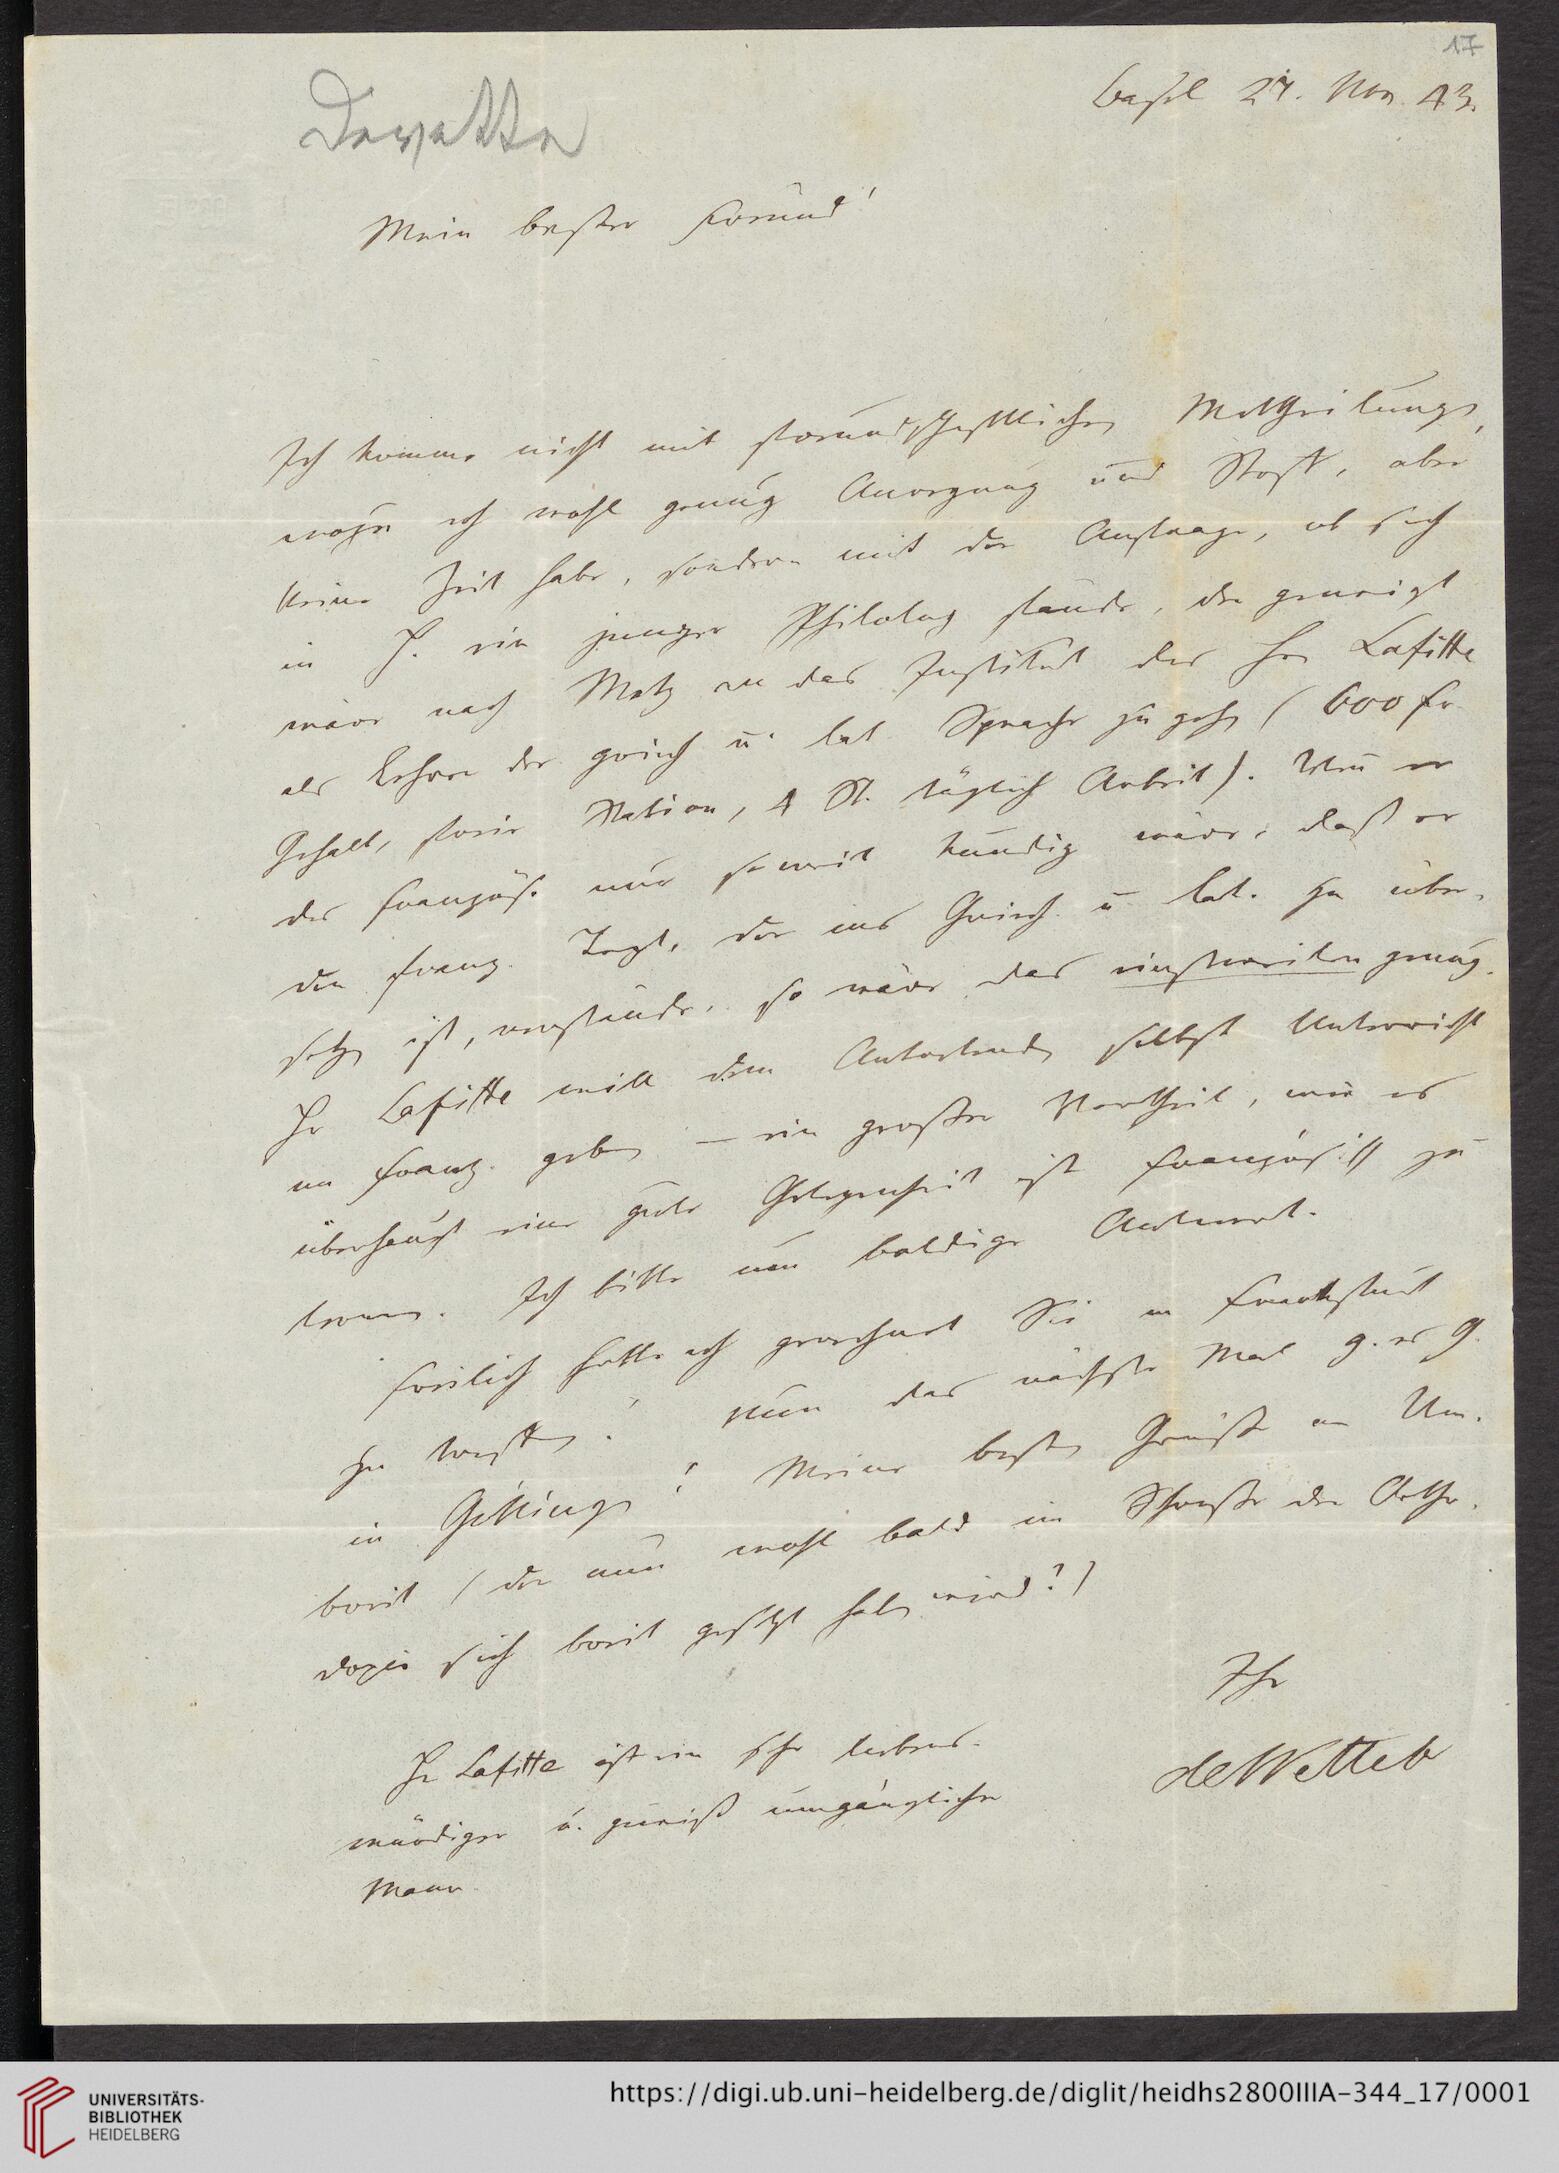 17
Basel 27. Nov. 43.
Dewette
Mein bester Freund!
Ich komme nicht mit freundschaftlichen Mittheilungen,
wozu ich wohl genug Anregung und Stoff, aber
keine Zeit habe, sondern mit der Anfrage, ob sich
in H. ein junger Philolog fände, der geneigt
wäre nach Metz an das Institut des Hrn Lafitte
als Lehrer der griech u. lat. Sprache zu gehen (600 fr
Gehalt, freie Station, 4 St. täglich Arbeit). Wenn er
des Französ. nur soweit kundig wäre, daß er
den franz. Text, der ins Griech. u lat. zu über-
setzen ist, verstände, so wäre das einstweilen genug.
Hr Lafitte will dem Antretenden selbst Unterricht
im Franz. geben – ein großer Vortheil, wie es
überhaupt eine gute Gelegenheit ist französisch zu
lernen. Ich bitte um baldige Antwort.
Freilich hatte ich gerechnet Sie in Frankfurt
zu treffen! Nun das nächste Mal g. es G.
in Göttingen! Meine besten Grüße an Um-
breit (der nun wohl bald im Schooße der Ortho-
doxie sich breit gesetzt haben wird?)
Ihr
deWette
Hr Lafitte ist ein sehr liebens-
würdiger u. gewiß umgänglicher
Mann.
UNIVERSITÄTS-
BIBLIOTHEK
HEIDELBERG
https://digi.ub.uni-heidelberg.de/diglit/heidhs2800IIIA-344_17/0001